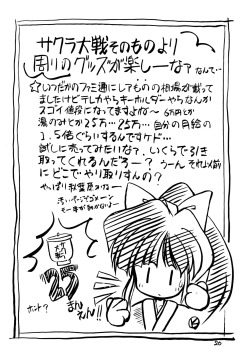 サクラ大戦そのものより
周りのグッズが楽しーな？なんて…
☆いつだかのファミ通にしてものの相場が載って
ましたけどテレカやらキーホルダーやらなんか
スゴイ値段になってますよねー 6万円とか
湯のみとか25万…25万… 自分の月給の
1.5倍ぐらいするんですケド…
試しに売ってみたいな？いくらで引き
取ってくれるんだろー？うーん それ以前
にどこでやり取りすんの？
やっぱり秋葉原かなー
大神
25
まん
えん!!
ホント？
20